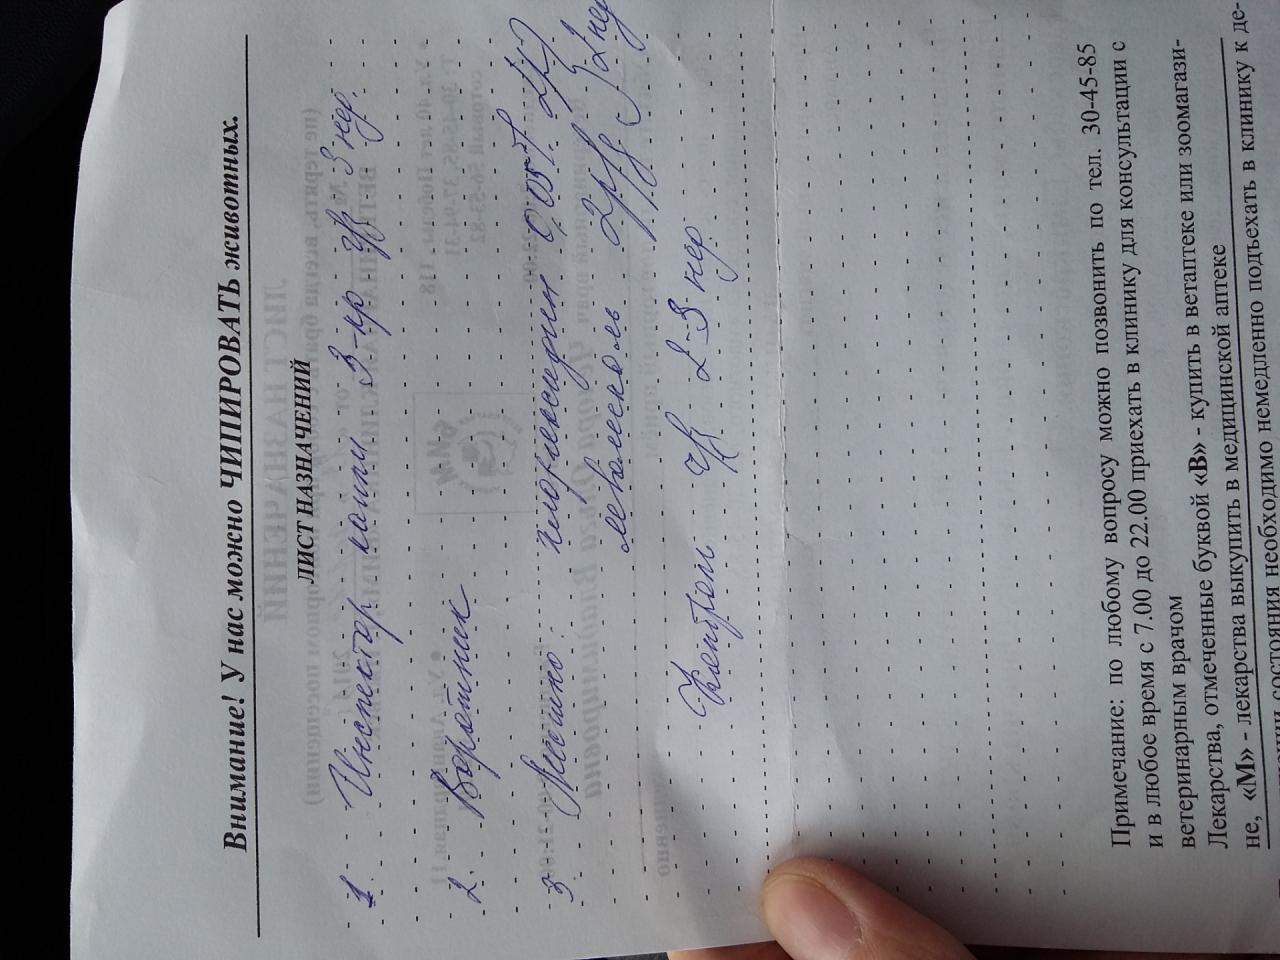 Внимание! У нас можно ЧИПИРОВАТЬ животных.
ЛИСТ НАЗНАЧЕНИЙ
1. Инспектор капли 3-кр ч/з 3 нед.
2. Воротник
3 Местно: хлоргексидин 0,05% 2р/д
левомеколь 2р/д } 2 нед
ч/з 2-3 нед
Примечание: по любому вопросу можно позвонить по тел. 30-45-85
и в любое время с 7.00 до 22.00 приехать в клинику для консультации с
ветеринарным врачом
Лекарства, отмеченные буквой «В» - купить в ветаптеке или зоомагази-
не, «М» - лекарства выкупить в медицинской аптеке
состояния необходимо немедленно подъехать в клинику к де-